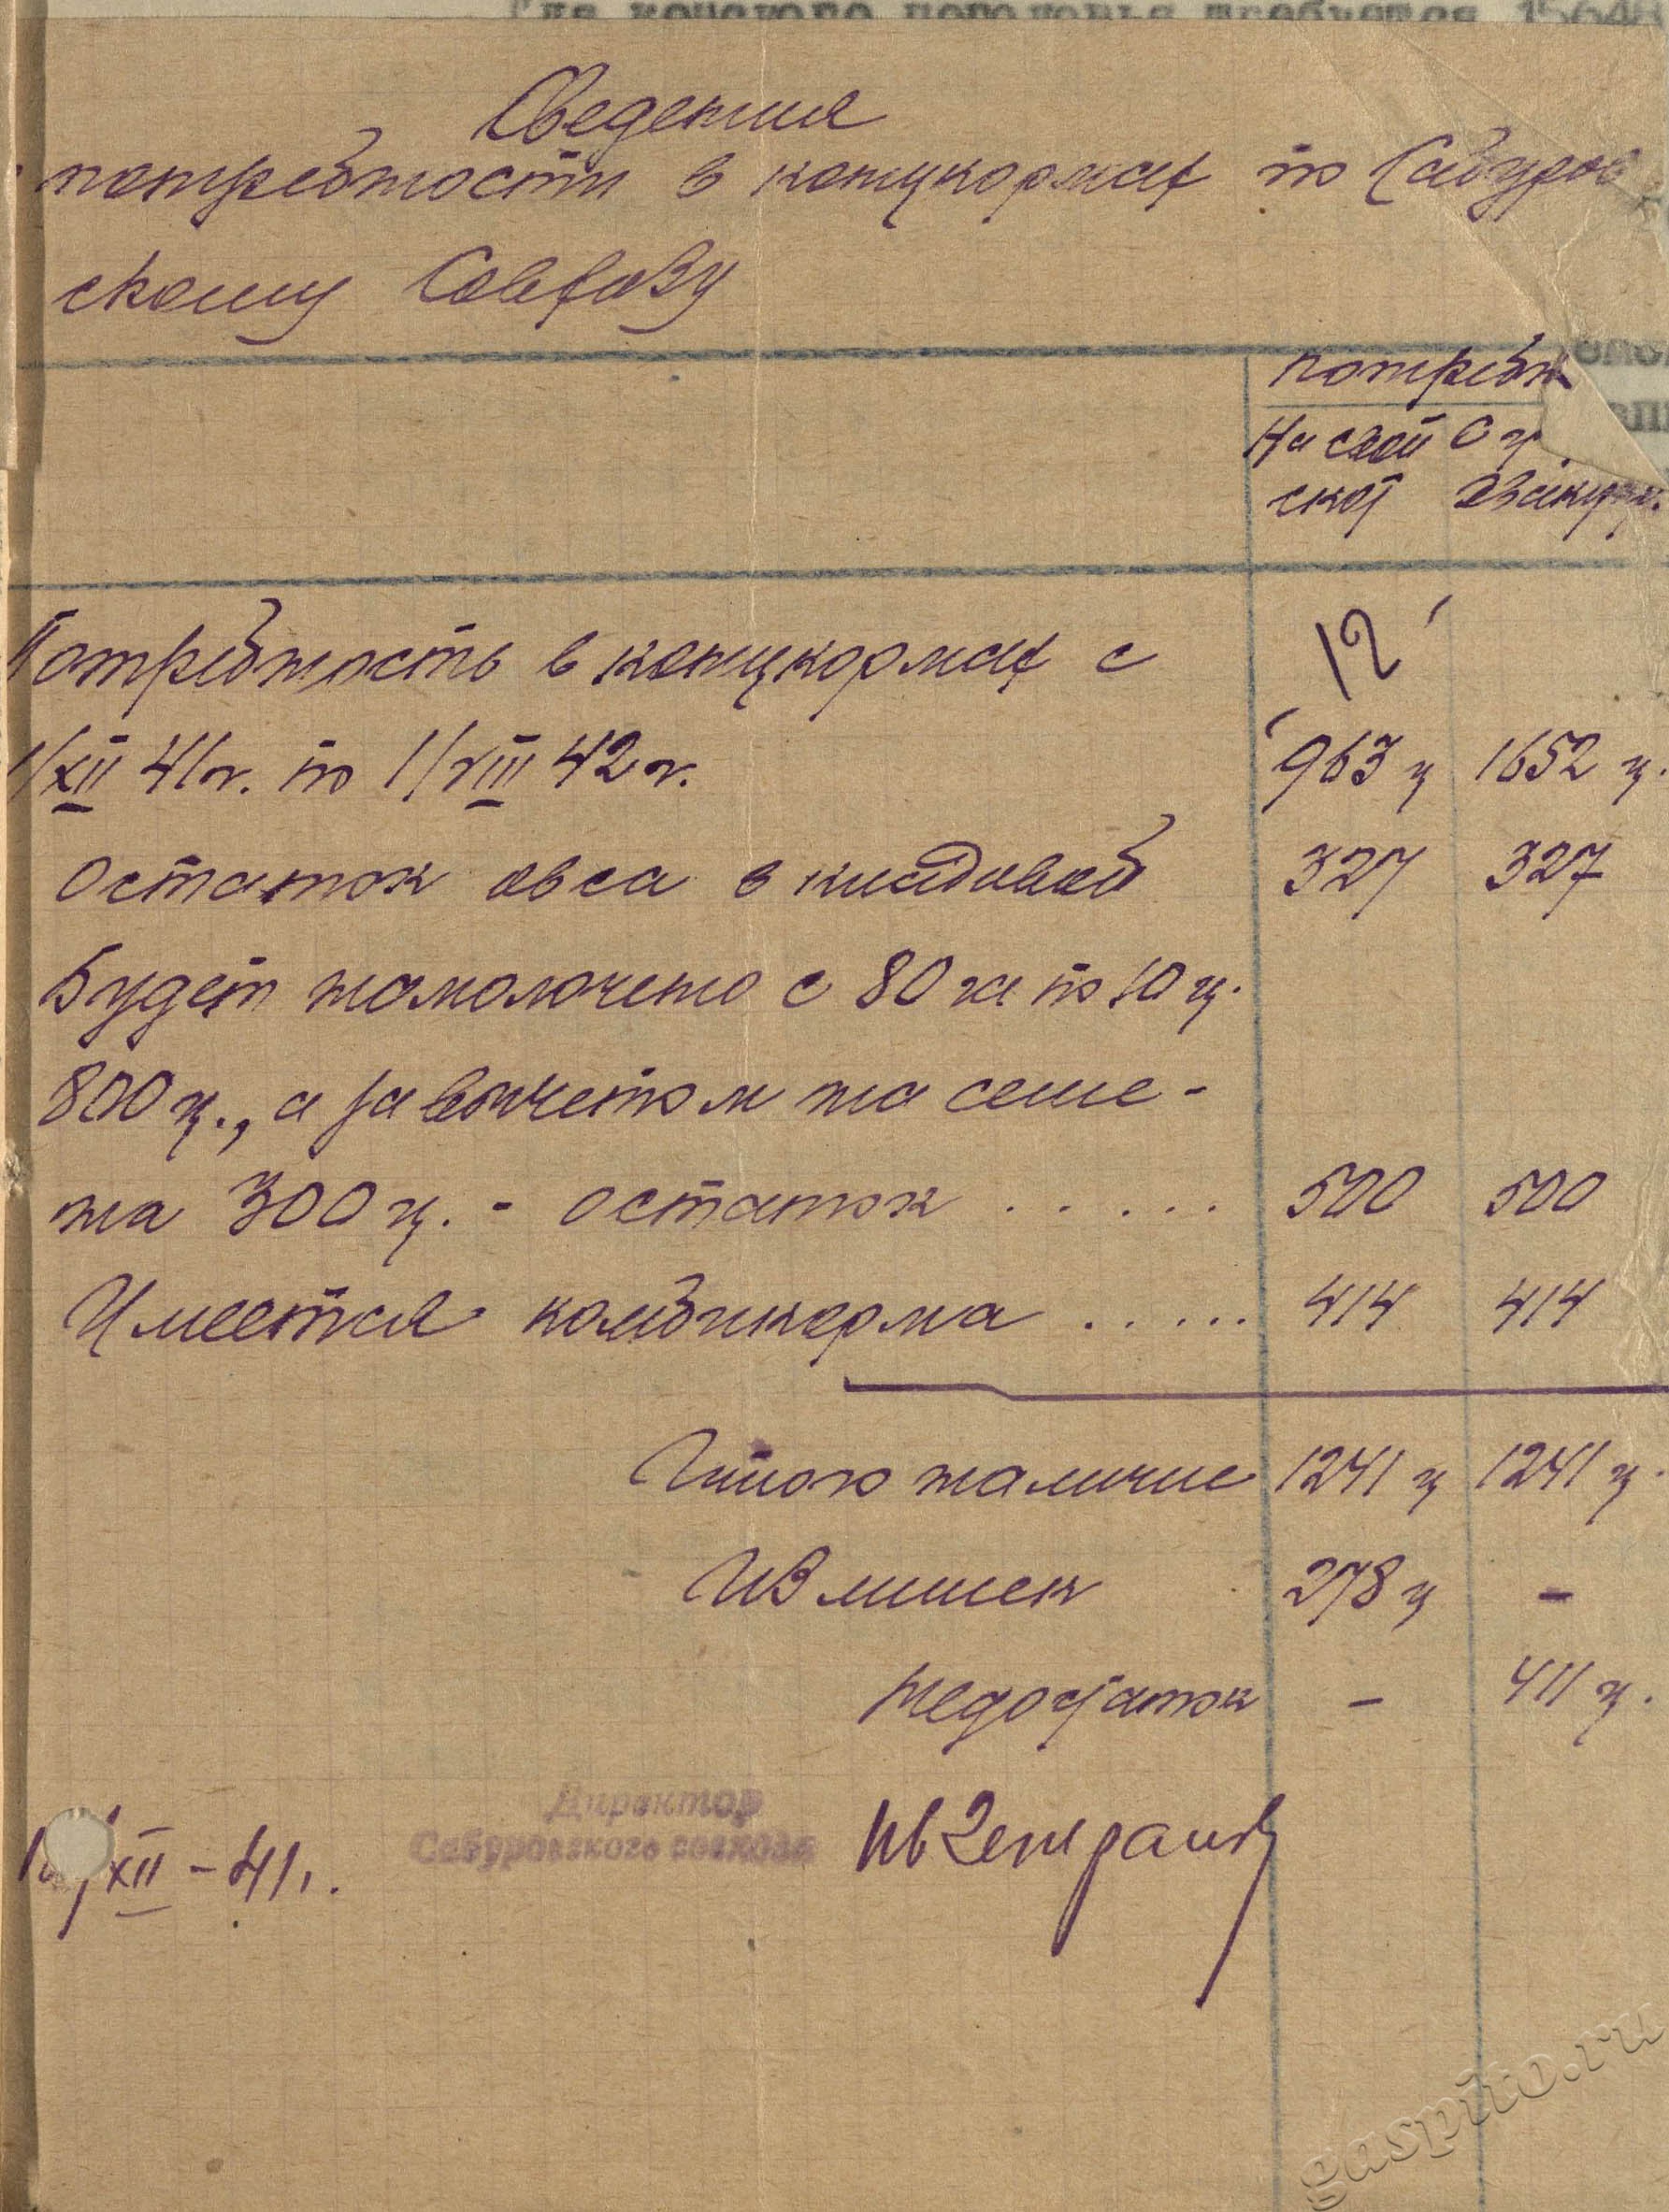 Для конского поголовья требуется 15648
Сведения
потребности в концкормах по Сабуров
скому Совхозу
потребн
На свой С у
скот эвакуир.
Потребность в концкормах с 12
1/XII 41г. по 1/VIII 42г. 963 ц 1652 ц.
Остаток овса в кладовой 327 327
Будет намолочено с 80 га по 10 ц.
800 ц., а за вычетом на семе-
на 300 ц. - остаток ..... 500 500
Имеется комбикорма ..... 414 414
Итого наличие 1241 ц 1241 ц.
Излишек 278 ц -
Недостаток - 411 ц.
Директор
Сабуровского совхоза
XII - 41г.
gaspito.ru